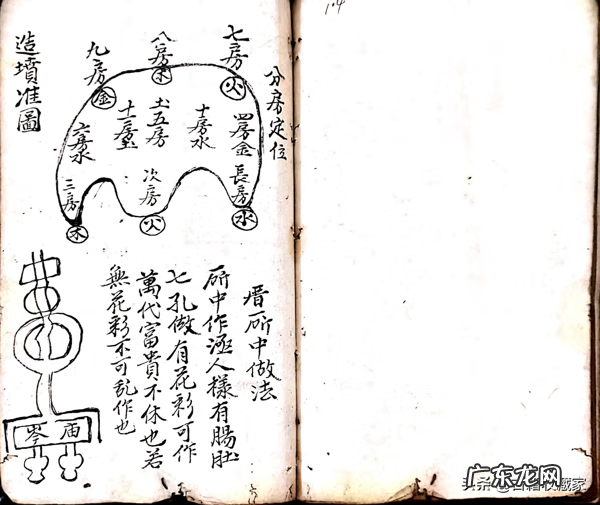 分房定位
造墳准圖
七房
火
八房
木
九房
金
四房金
長房
水
十房水
土五房
次房
火
十二房
六房水
三房
木
厝斫中做法
斫中作逐人樣有腸肚
七孔做有花彩可作
萬代富貴不休也若
無花彩不可乱作也
庙
岑
1.4
广东龙网
头条@古籍收藏家